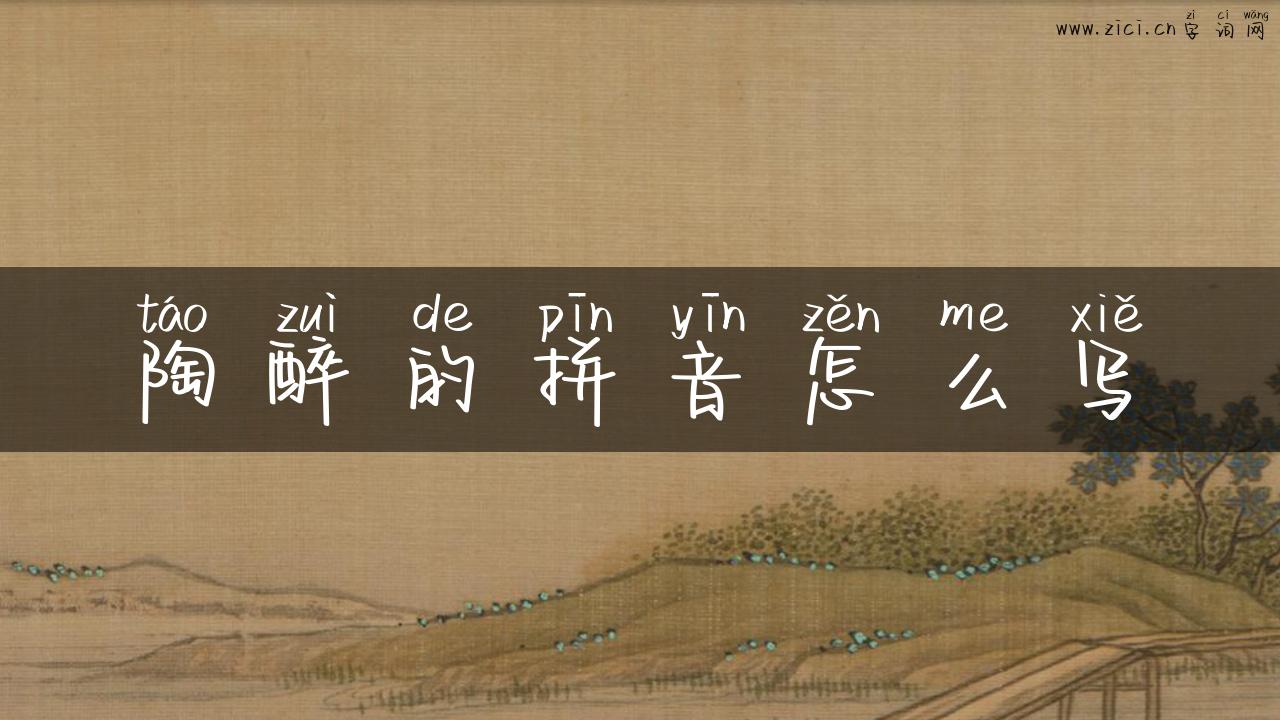 zì cí wǎng
www.zici.cn字词网
táo zuì de pīn yīn zěn me xiě
陶醉的拼音怎么写